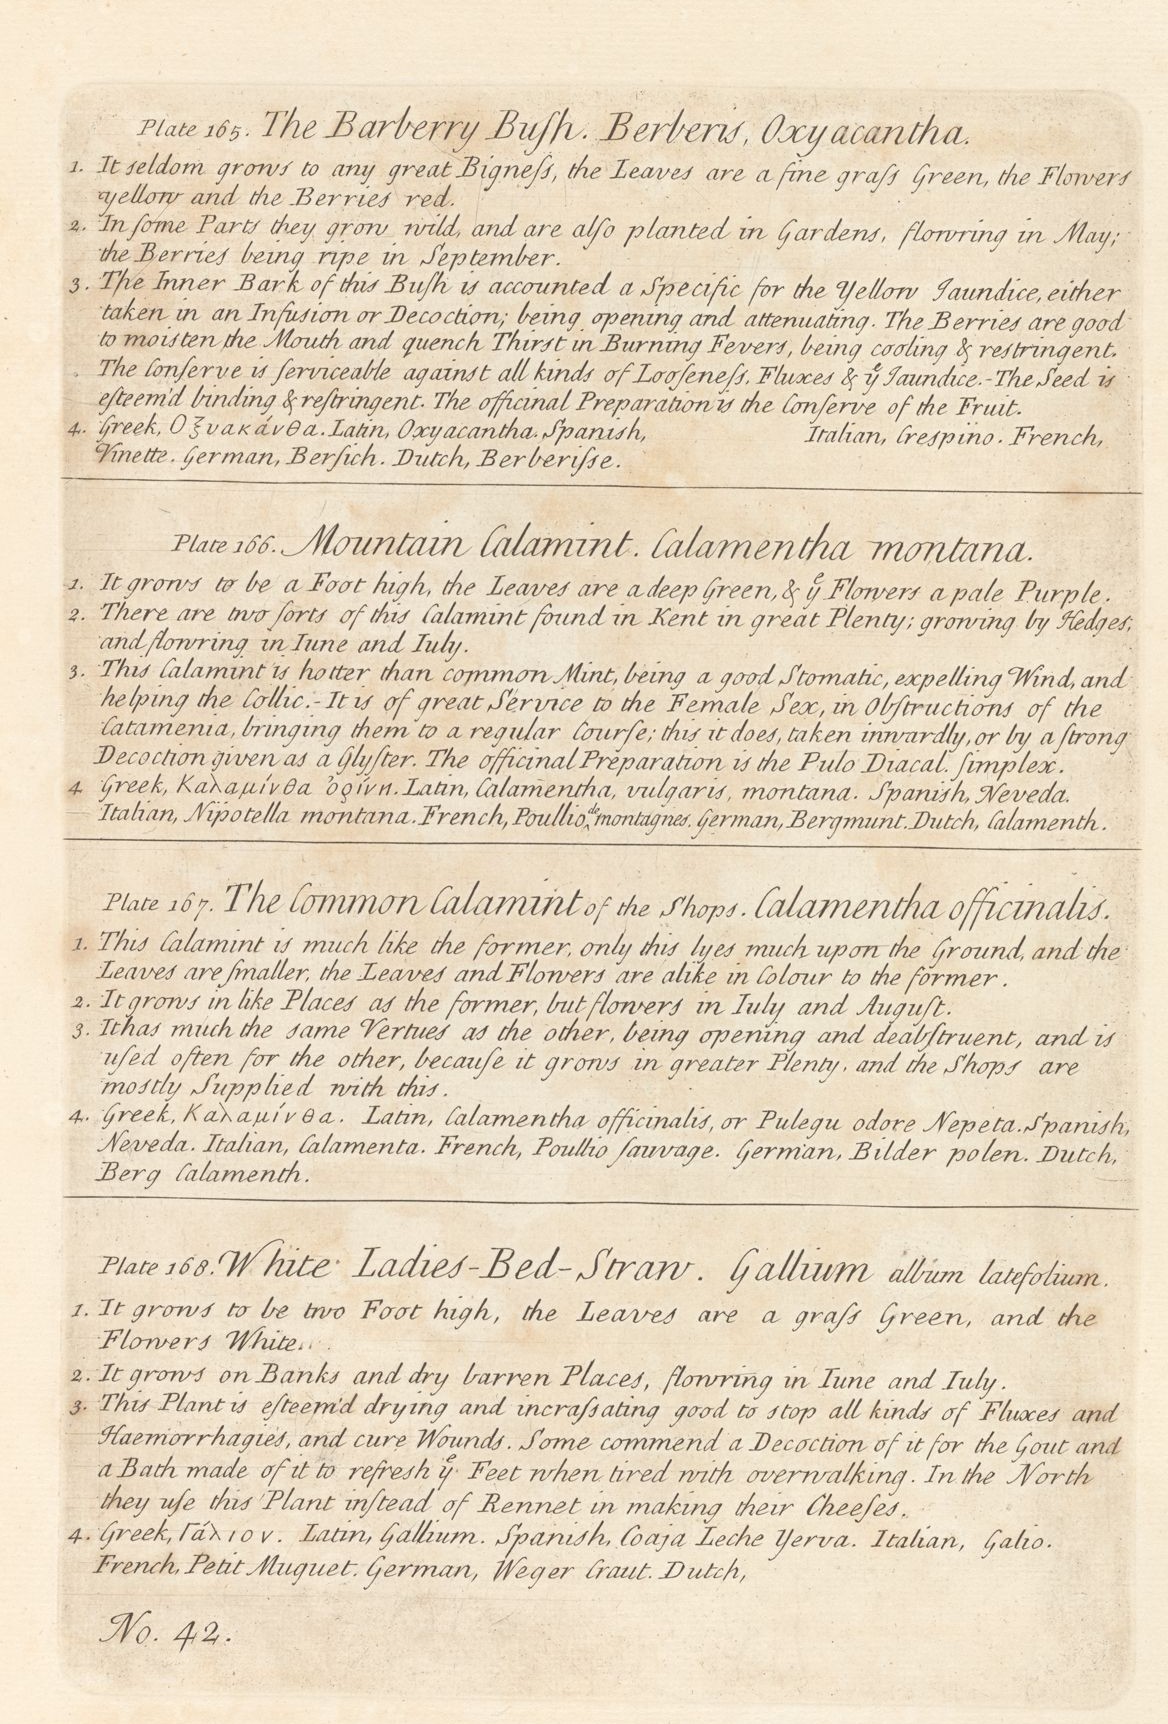 Plate 165. The Barberry Buſh. Berberis, Oxyacantha.
1. It seldom grows to any great Bigneſs, the Leaves are a fine graſs Green, the Flowers
yellow and the Berries red.
2. In ſome Parts they grow wild, and are alſo planted in Gardens, flowring in May;
the Berries being ripe in September.
3. The Inner Bark of this Buſh is accounted a Specific for the Yellow Jaundice, either
taken in an Infusion or Decoction; being opening and attenuating. The Berries are good
to moisten the Mouth and quench Thirst in Burning Fevers, being cooling & restringent.
The Conſerve is ſerviceable against all kinds of Looſeneſs, Fluxes & yͤ Jaundice.-The Seed is
eſteem'd binding & reſtringent. The officinal Preparation is the Conſerve of the Fruit.
4. Greek, Οξυακάνθα. Latin, Oxyacantha. Spanish, Italian, Crespino. French,
Vinette. German, Berſich. Dutch, Berberiſse.
Plate 166. Mountain Calamint. Calamentha montana.
1. It grows to be a Foot high, the Leaves are a deep Green, & yͤ Flowers a pale Purple.
2. There are two ſorts of this Calamint found in Kent in great Plenty; growing by Hedges,
and flowring in Iune and Iuly.
3. This Calamint is hotter than common Mint, being a good Stomatic, expelling Wind, and
helping the Collic.- It is of great Service to the Female Sex, in Obſtructions of the
Catamenia, bringing them to a regular Courſe; this it does, taken inwardly, or by a ſtrong
Decoction given as a Glyſter. The officinal Preparation is the Pulo Diacal. ſimplex.
4 Greek, Καλαμίνθα ὀρίνη. Latin, Calamentha, vulgaris, montana. Spanish, Neveda.
Italian, Nipotella montana. French, Poullio de montagnes. German, Bergmunt. Dutch, Calamenth.
Plate 167. The Common Calamint of the Shops. Calamentha officinalis.
1. This Calamint is much like the former, only this lyes much upon the Ground, and the
Leaves are ſmaller, the Leaves and Flowers are alike in Colour to the former.
2. It grows in like Places as the former, but flowers in Iuly and Auguſt.
3. It has much the same Vertues as the other, being opening and deabſtruent, and is
uſed often for the other, becauſe it grows in greater Plenty, and the Shops are
mostly Supplied with this.
4. Greek, Καλαμίνθα. Latin, Calamentha officinalis, or Pulegu odore Nepeta. Spanish,
Neveda. Italian, Calamenta. French, Poullio ſauvage. German, Bilder polen. Dutch,
Berg Calamenth.
Plate 168. White Ladies-Bed-Straw. Gallium album latefolium.
1. It grows to be two Foot high, the Leaves are a graſs Green, and the
Flowers White.
2. It grows on Banks and dry barren Places, flowring in Iune and Iuly.
3. This Plant is eſteem'd drying and incraſsating good to stop all kinds of Fluxes and
Haemorrhagies, and cure Wounds. Some commend a Decoction of it for the Gout and
a Bath made of it to refresh yͤ Feet when tired with overwalking. In the North
they uſe this Plant inſtead of Rennet in making their Cheeſes.
4. Greek, Γάλιον. Latin, Gallium. Spanish, Coaja Leche Yerva. Italian, Galio.
French, Petit Muguet. German, Weger Craut. Dutch,
No. 42.